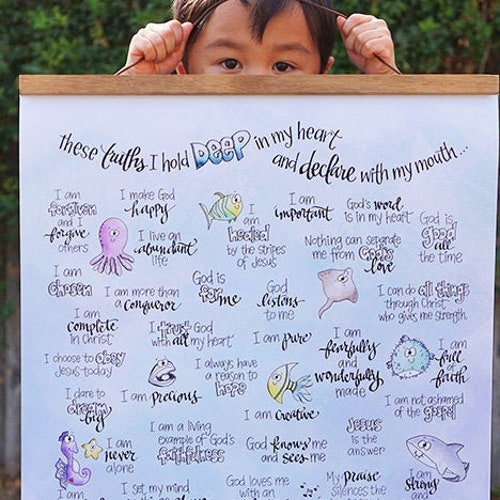 these truths I hold DEEP in my heart
and declare with my mouth...
I am
forgiven
and I
forgive
others
I make God
happy
I live an
abundant
life
I
am
healed
by the stripes
of Jesus
I am
important
God's word
is in my heart
God is
good
all
the time
Nothing can separate
me from God's
love
I am
chosen
I am more than
a conqueror
God is
for me
God
listens
to me
I can do all things
through Christ
who gives me strength
I am
complete
in Christ
I trust God
with all my heart
I am pure
I am
fearfully
and
wonderfully
made
I am
full
of
faith
I choose to obey
Jesus today
I am precious
I always have
a reason to
hope
I am not ashamed
of the gospel
I dare to
dream
big
I am creative
I am
never
alone
I am a living
example of God's
faithfulness
God knows me
and sees me
Jesus
is the
answer
I am
strong
and
I am
I set my mind
God loves me
with an
My praise
silences the